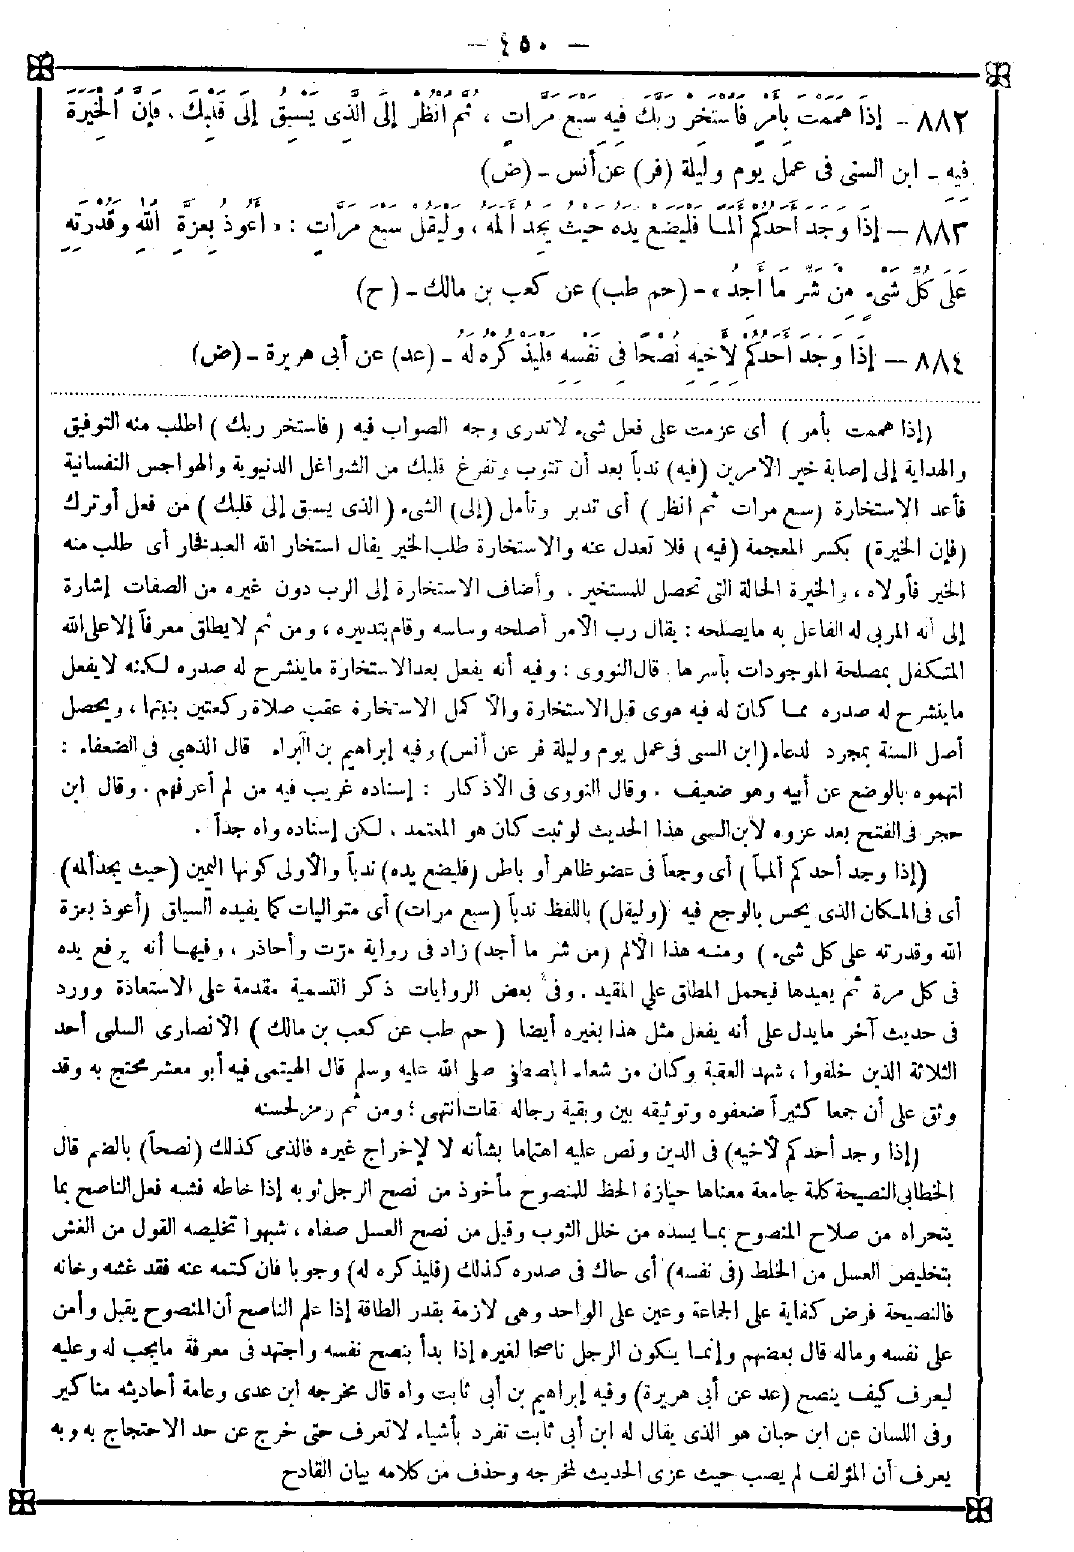 — ٤٥٠ —
٨٨٢ – إِذَا هَمَمْتَ بِأَمْرٍ فَاسْتَخِرْ رَبَّكَ فِيهِ سَبْعَ مَرَّاتٍ ، ثُمَّ انْظُرْ إِلَى الَّذِى يَسْبِقُ إِلَى قَلْبِكَ ، فَإِنَّ الْخِيَرَةَ
فِيهِ – ابن السنى فى عمل يوم وليلة (فر) عن أنس – (ض)
٨٨٣ – إِذَا وَجَدَ أَحَدُكُمْ أَلَمًا فَلْيَضَعْ يَدَهُ حَيْثُ يَجِدُ أَلَمَهُ ، وَلْيَقُلْ سَبْعَ مَرَّاتٍ : « أَعُوذُ بِعِزَّةِ اللهِ وَقُدْرَتِهِ
عَلَى كُلِّ شَىْءٍ مِنْ شَرِّ مَا أَجِدُ » – (حم طب) عن كعب بن مالك – (ح)
٨٨٤ – إِذَا وَجَدَ أَحَدُكُمْ لِأَخِيهِ نُصْحًا فِى نَفْسِهِ فَلْيَذْكُرْهُ لَهُ – (عد) عن أبى هريرة – (ض)
(إذا هممت بأمر ) أى عزمت على فعل شىء لاتدرى وجه الصواب فيه ( فاستخر ربك ) اطلب منه التوفيق
والهداية إلى إصابة خير الأمرين (فيه) ندباً بعد أن تتوب وتفرغ قلبك من الشواغل الدنيوية والهواجس النفسانية
فأعد الاستخارة (سبع مرات ثم انظر ) أى تدبر وتأمل (إلى) الشىء ( الذى يسبق إلى قلبك ) من فعل أوترك
(فإن الخيرة) بكسر المعجمة (فيه) فلا تعدل عنه والاستخارة طلب الخير يقال استخار الله العبد فخار أى طلب منه
الخير فأولاه ، والخيرة الحالة التى تحصل للمستخير . وأضاف الاستخارة إلى الرب دون غيره من الصفات إشارة
إلى أنه المربى له الفاعل به مايصلحه : يقال رب الأمر أصلحه وساسه وقام بتدبيره ، ومن ثم لايطلق معرفاً إلا على الله
المتكفل بمصلحة الموجودات بأسرها . قال النووى : وفيه أنه يفعل بعد الاستخارة ماينشرح له صدره لكنه لايفعل
ماينشرح له صدره مما كان له فيه هوى قبل الاستخارة والأكمل الاستخارة عقب صلاة ركعتين بنيتها ، ويحصل
أصل السنة بمجرد لدعاء (ابن السى فى عمل يوم وليلة فر عن أنس) وفيه إبراهيم بن البراء قال الذهبى فى الضعفاء :
اتهموه بالوضع عن أبيه وهو ضعيف . وقال النووى فى الأذكار : إسناده غريب فيه من لم أعرفهم . وقال ابن
حجر فى الفتح بعد عزوه لابن السى هذا الحديث لو ثبت كان هو المعتمد ، لكن إسناده واه جداً .
(إذا وجد أحدكم ألماً ) أى وجعاً فى عضو ظاهر أو باطن (فليضع يده) ندباً والأولى كونها اليمين (حيث يجد ألمه)
أى فى المكان الذى يحس بالوجع فيه (وليقل) باللفظ ندباً (سبع مرات) أى متواليات كما يفيده السياق (أعوذ بعزة
الله وقدرته على كل شىء ) ومنه هذا الألم (من شر ما أجد) زاد فى رواية مرّت وأحاذر ، وفيها أنه يرفع يده
فى كل مرة ثم يعيدها فيحمل المطلق على المقيد . وفى بعض الروايات ذكر التسمية مقدمة على الاستعاذة وورد
فى حديث آخر مايدل على أنه يفعل مثل هذا بغيره أيضا ( حم طب عن كعب بن مالك ) الأنصارى السلمى أحد
الثلاثة الذين خلفوا ، شهد العقبة وكان من شعراء المصطفى صلى الله عليه وسلم قال الهيتمى فيه أبو معشر محتج به وقد
وثق على أن جمعا كثيراً ضعفوه وتوثيقه بين وبقية رجاله ثقات انتهى ؛ ومن ثم رمز لحسنه
(إذا وجد أحدكم لأخيه) فى الدين ونص عليه اهتماما بشأنه لا لإخراج غيره فالذى كذلك (نصحاً) بالضم قال
الخطابى النصيحة كلمة جامعة معناها حيازة الحظ للمنصوح مأخوذ من نصح الرجل ثوبه إذا خاطه فشبه فعل الناصح بما
يتحراه من صلاح المنصوح بما يسده من خلل الثوب وقيل من نصح العسل صفاه ، شبهوا تخليصه القول من الغش
بتخليص العسل من الخلط (فى نفسه) أى حاك فى صدره كذلك (فليذكره له) وجوبا فان كتمه عنه فقد غشه وخانه
فالنصيحة فرض كفاية على الجماعة وعين على الواحد وهى لازمة بقدر الطاقة إذا علم الناصح أن المنصوح يقبل وأمن
على نفسه وماله قال بعضهم وإنما يكون الرجل ناصحا لغيره إذا بدأ بنصح نفسه واجتهد فى معرفة مايجب له وعليه
ليعرف كيف ينصح (عد عن أبى هريرة) وفيه إبراهيم بن أبى ثابت واه قال مخرجه ابن عدى وعامة أحاديثه مناكير
وفى اللسان عن ابن حبان هو الذى يقال له ابن أبى ثابت تفرد بأشياء لاتعرف حتى خرج عن حد الاحتجاج به وبه
يعرف أن المؤلف لم يصب حيث عزى الحديث لمخرجه وحذف من كلامه بيان القادح